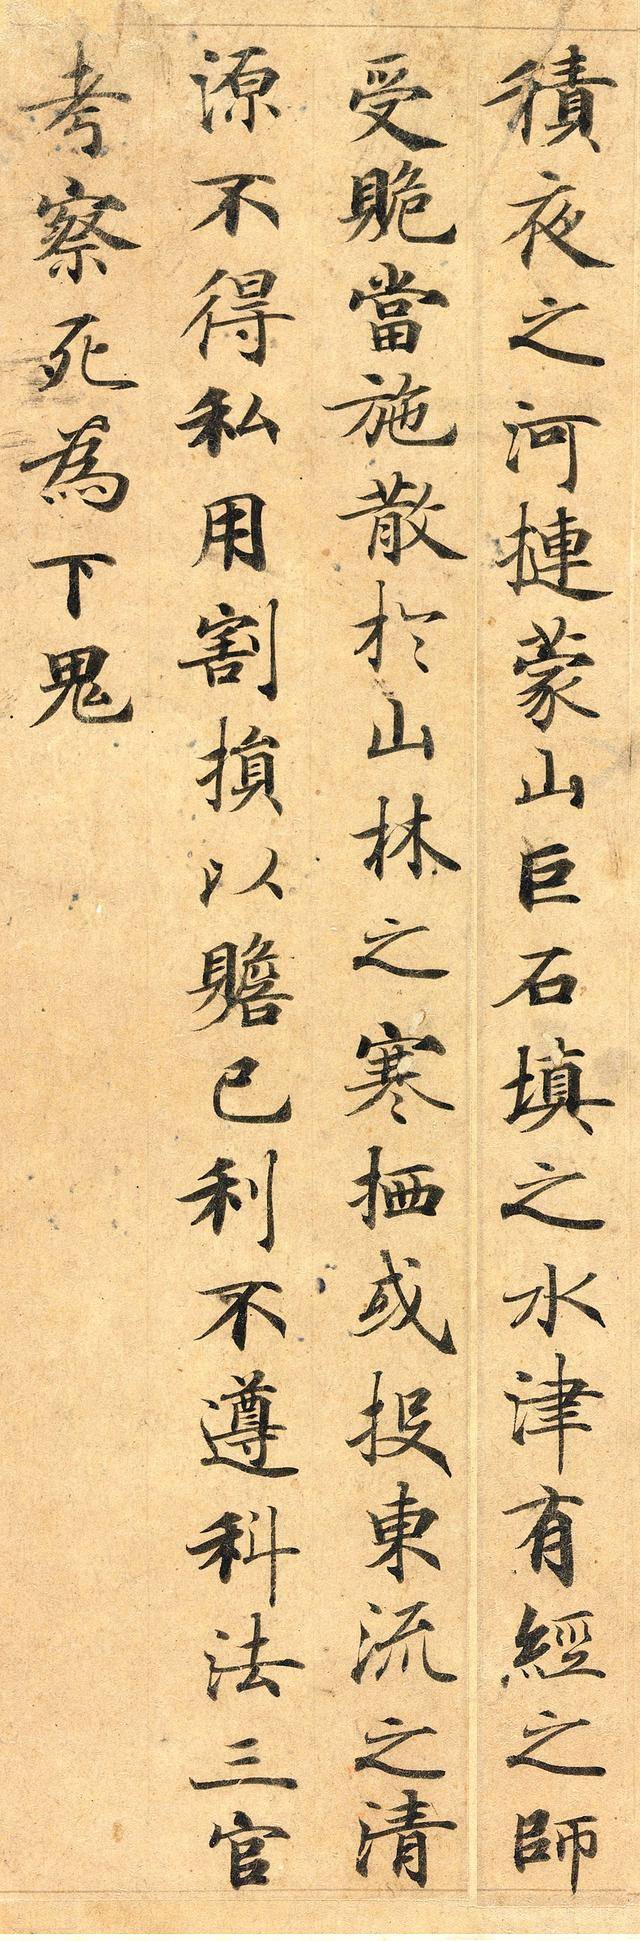 積夜之河揵蒙山巨石填之水津有經之師
受賍當施散於山林之寒栖或投東流之清
源不得私用割損以贍己利不遵科法三官
考察死為下鬼